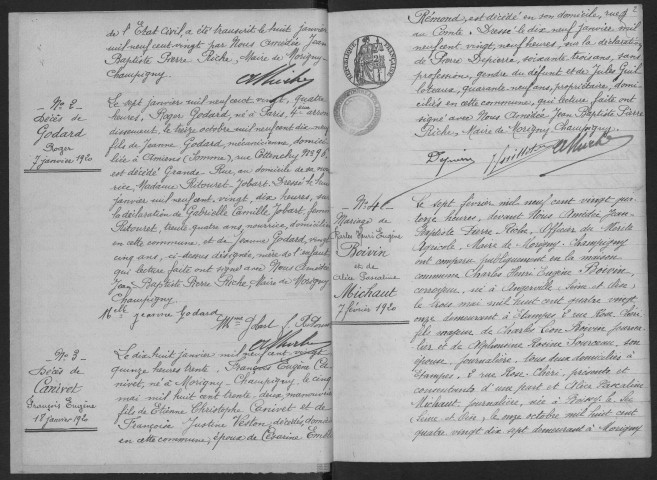 de l'Etat civil, a été transcrit le huit janvier
mil neuf cent vingt par Nous Amédée Jean
Baptiste Pierre Riche, Maire de Morigny-
Champigny.
ARiche
No 2
Décès de
Godard
Roger
7 janvier 1920
Le sept janvier mil neuf cent vingt, quatre
heures, Roger Godard, né à Paris, 4ème arron
dissement, le treize octobre mil neuf cent dix neuf
fils de Jeanne Godard, mécanicienne, domici
liée à Amiens (Somme), rue Cottenchy No 96,
est décédé Grande-Rue, au domicile de sa nour
rice Madame Ritouret-Jobart. Dressé le huit
janvier mil neuf cent vingt, dix heures, sur
la déclaration de Gabrielle Camille Jobart, femme
Ritouret, trente quatre ans, nourrice, domiciliée
en cette commune, et de Jeanne Godard, vingt
cinq ans, ci-dessus désignée, mère de l'enfant
qui lecture faite ont signé avec Nous Amédée
Jean Baptiste Pierre Riche, Maire de Morigny
Champigny.
Melle Jeanne Godard
Mme Jobart Ritouret
ARiche
No 3
Décès de
Canivet
François Eugène
18 janvier 1920
Le dix huit janvier mil neuf cent vingt
quinze heures trente, François Eugène Ca
nivet, né à Morigny-Champigny, le cinq
mai mil huit cent trente deux, manouvrier
fils de Etienne Christophe Canivet et de
Françoise Justine Veslon, décédés, domicilié
en cette commune, époux de Césarine
2
RÉPUBLIQUE FRANÇAISE
Rémond, est décédé en son domicile, rue
au Comte. Dressé le dix neuf janvier mil
neuf cent vingt, neuf heures, sur la déclaration
de Pierre Depierre, soixante trois ans, sans
profession, gendre du défunt et de Jules Guil
loteaux, quarante neuf ans, propriétaire, domi
ciliés en cette commune, qui lecture faite ont
signé avec Nous Amédée Jean Baptiste Pierre
Riche, Maire de Morigny Champigny.
ARiche
No 4
Mariage de
Charles Henri Eugène
Boivin
et de
Alice Pascaline
Michaut
7 février 1920
Le sept février mil neuf cent vingt
heures, devant Nous Amédée Jean
Baptiste Pierre Riche, Officier du Mérite
Agricole, Maire de Morigny-Champigny
ont comparu publiquement en la maison
commune Charles Henri Eugène Boivin,
né à Angerville Seine et Oise,
le trois mai mil huit cent quatre vingt
onze demeurant à Etampes, 2 rue Rose Chéri
fils majeur de Charles Léon Boivin journa
lier et de Alphonsine Rosine son
épouse, journalière, tous deux domiciliés à
Etampes, 2 rue Rose-Chéri, présents et
consentants d'une part et Alice Pascaline
Michaut, journalière, née à Boissy le Sec
Seine et Oise, le onze octobre mil huit cent
quatre vingt dix sept demeurant à Morigny